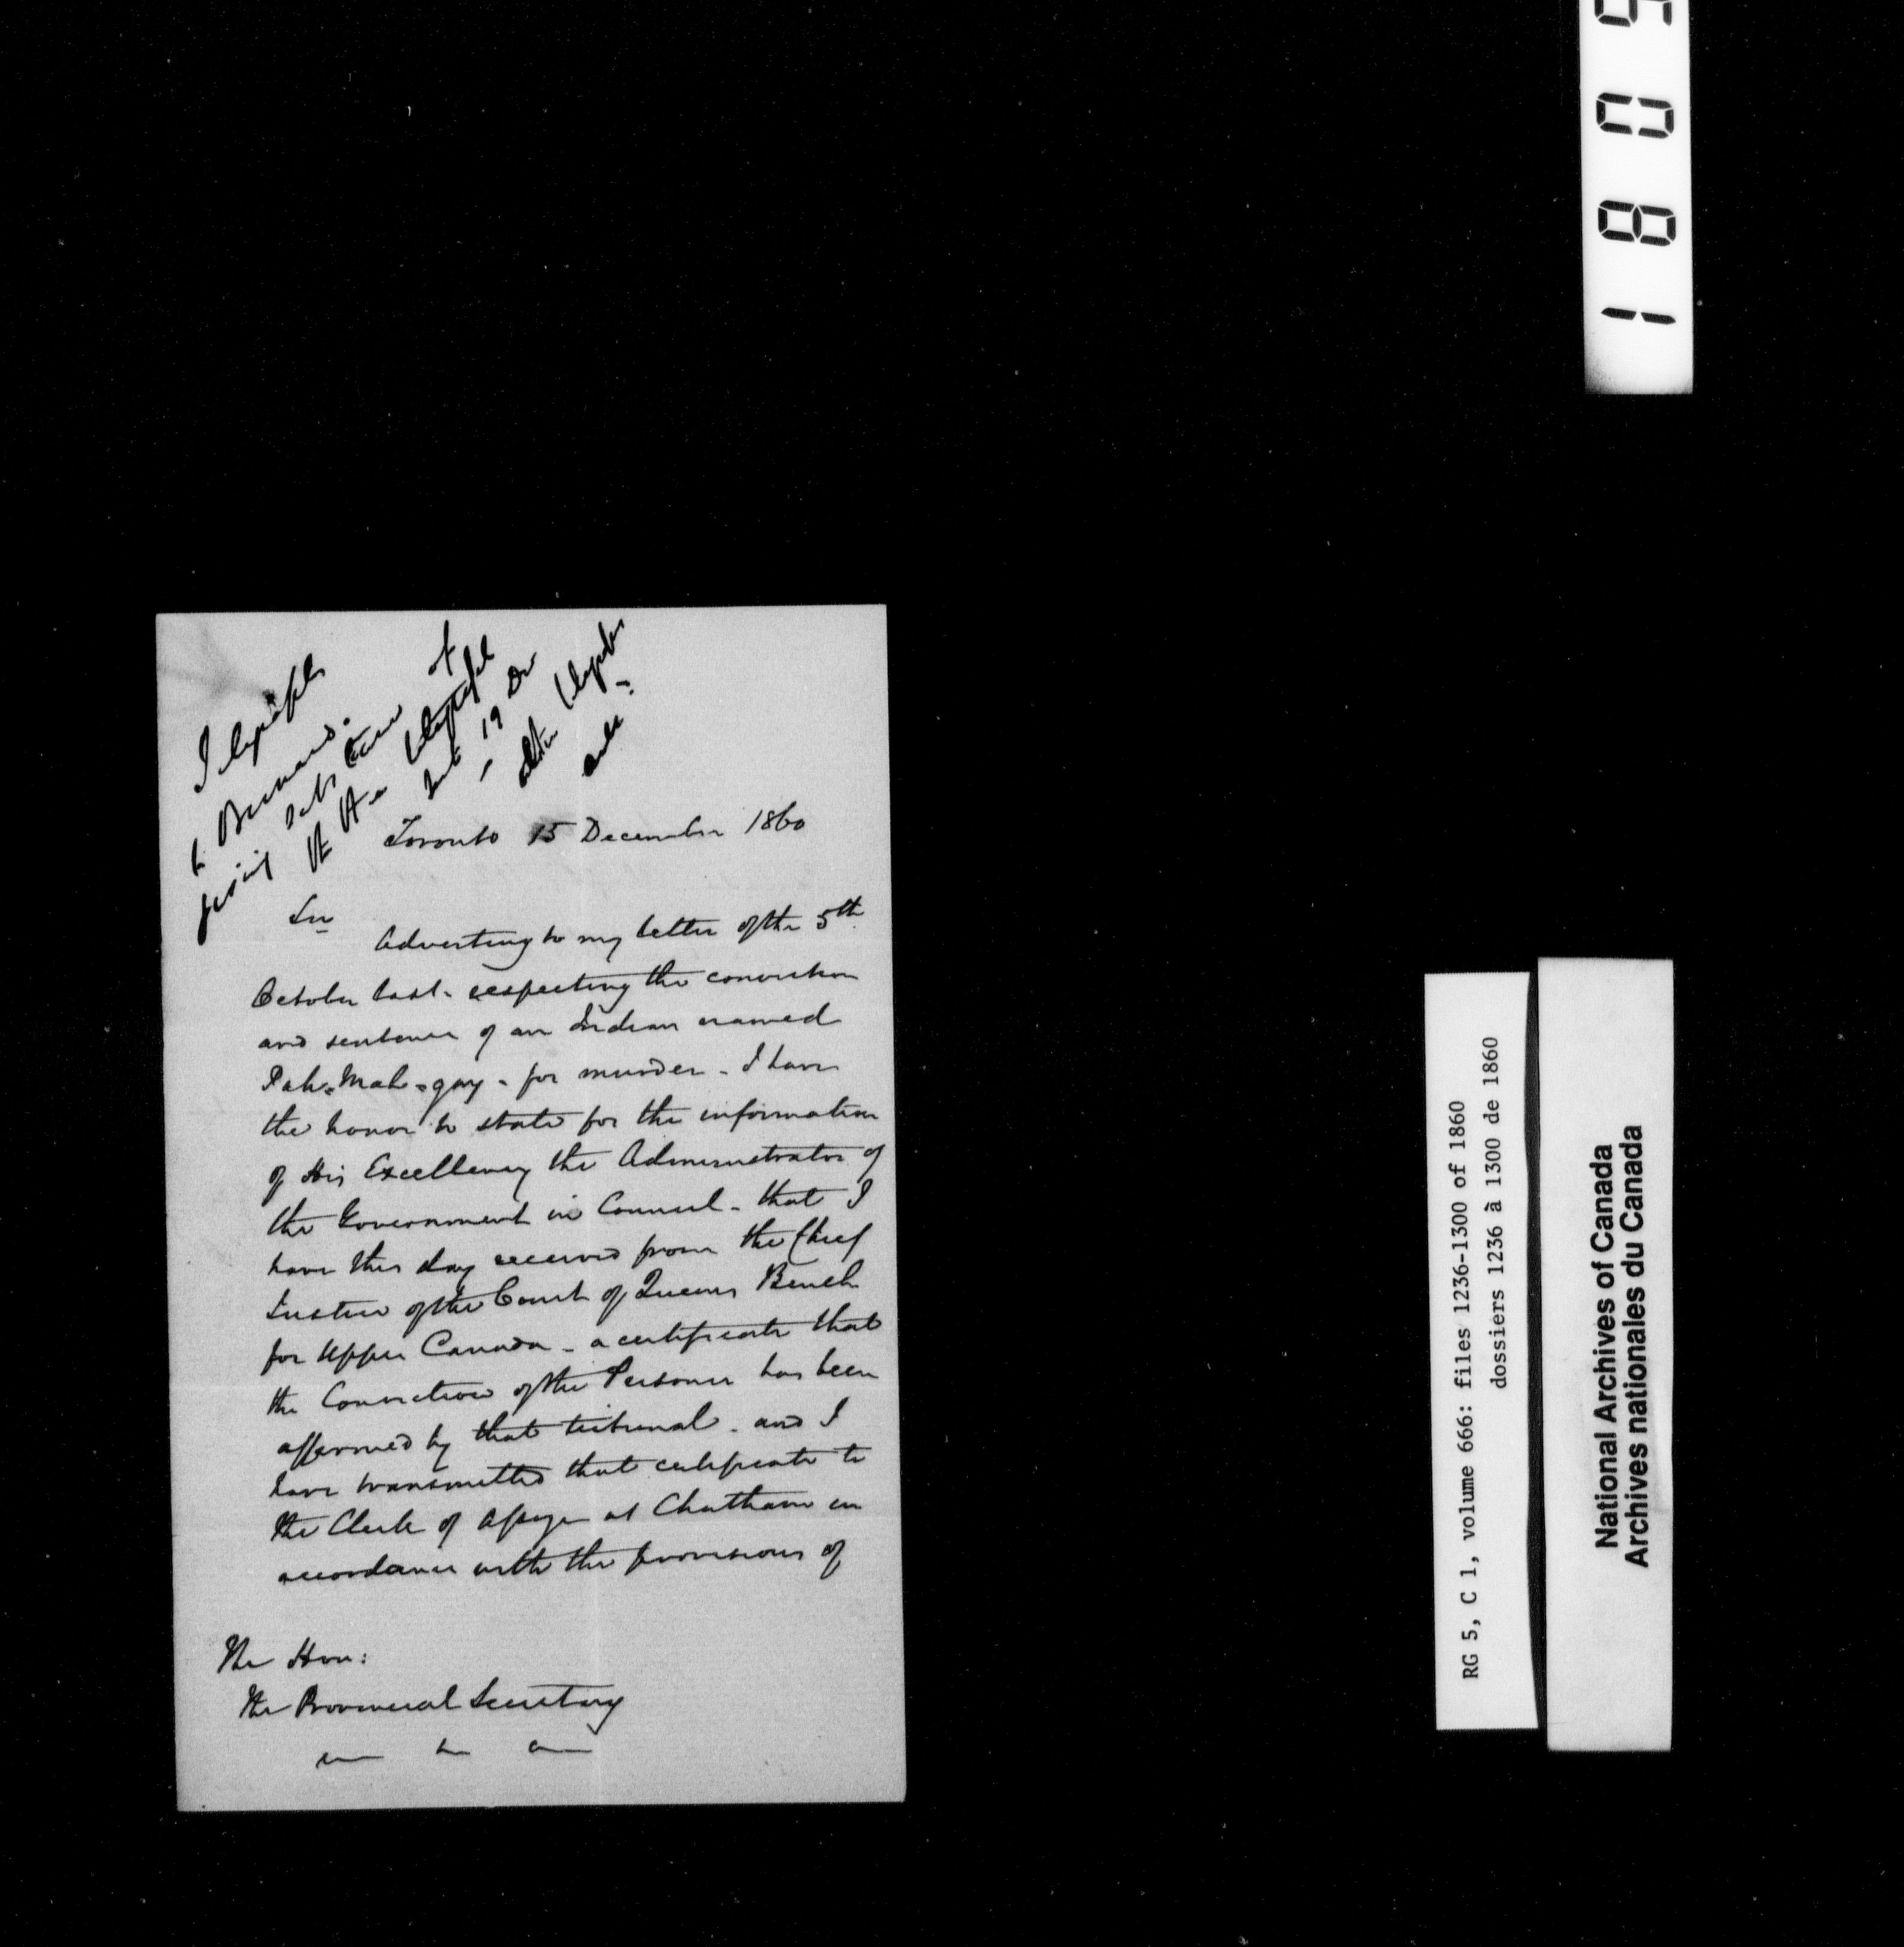 Toronto 15 December 1860
Sir
Adverting to my letter of the 5th
October last - respecting the conviction
and sentence of an Indian named
Pah-Mah-gay - for murder - I have
the honor to state for the information
of His Excellency the Administrator of
the Government in Council - that I
have this day received from the Chief
Justice of the Court of Queens Bench
for Upper Canada - a certificate that
the Conviction of the Prisoner has been
affirmed by that tribunal - and I
have transmitted that certificate to
the Clerk of Assize at Chatham in
accordance with the provisions of
The Hon:
The Provincial Secretary
1805
RG 5, C 1, volume 666: files 1236-1300 of 1860
dossiers 1236 à 1300 de 1860
National Archives of Canada
Archives nationales du Canada